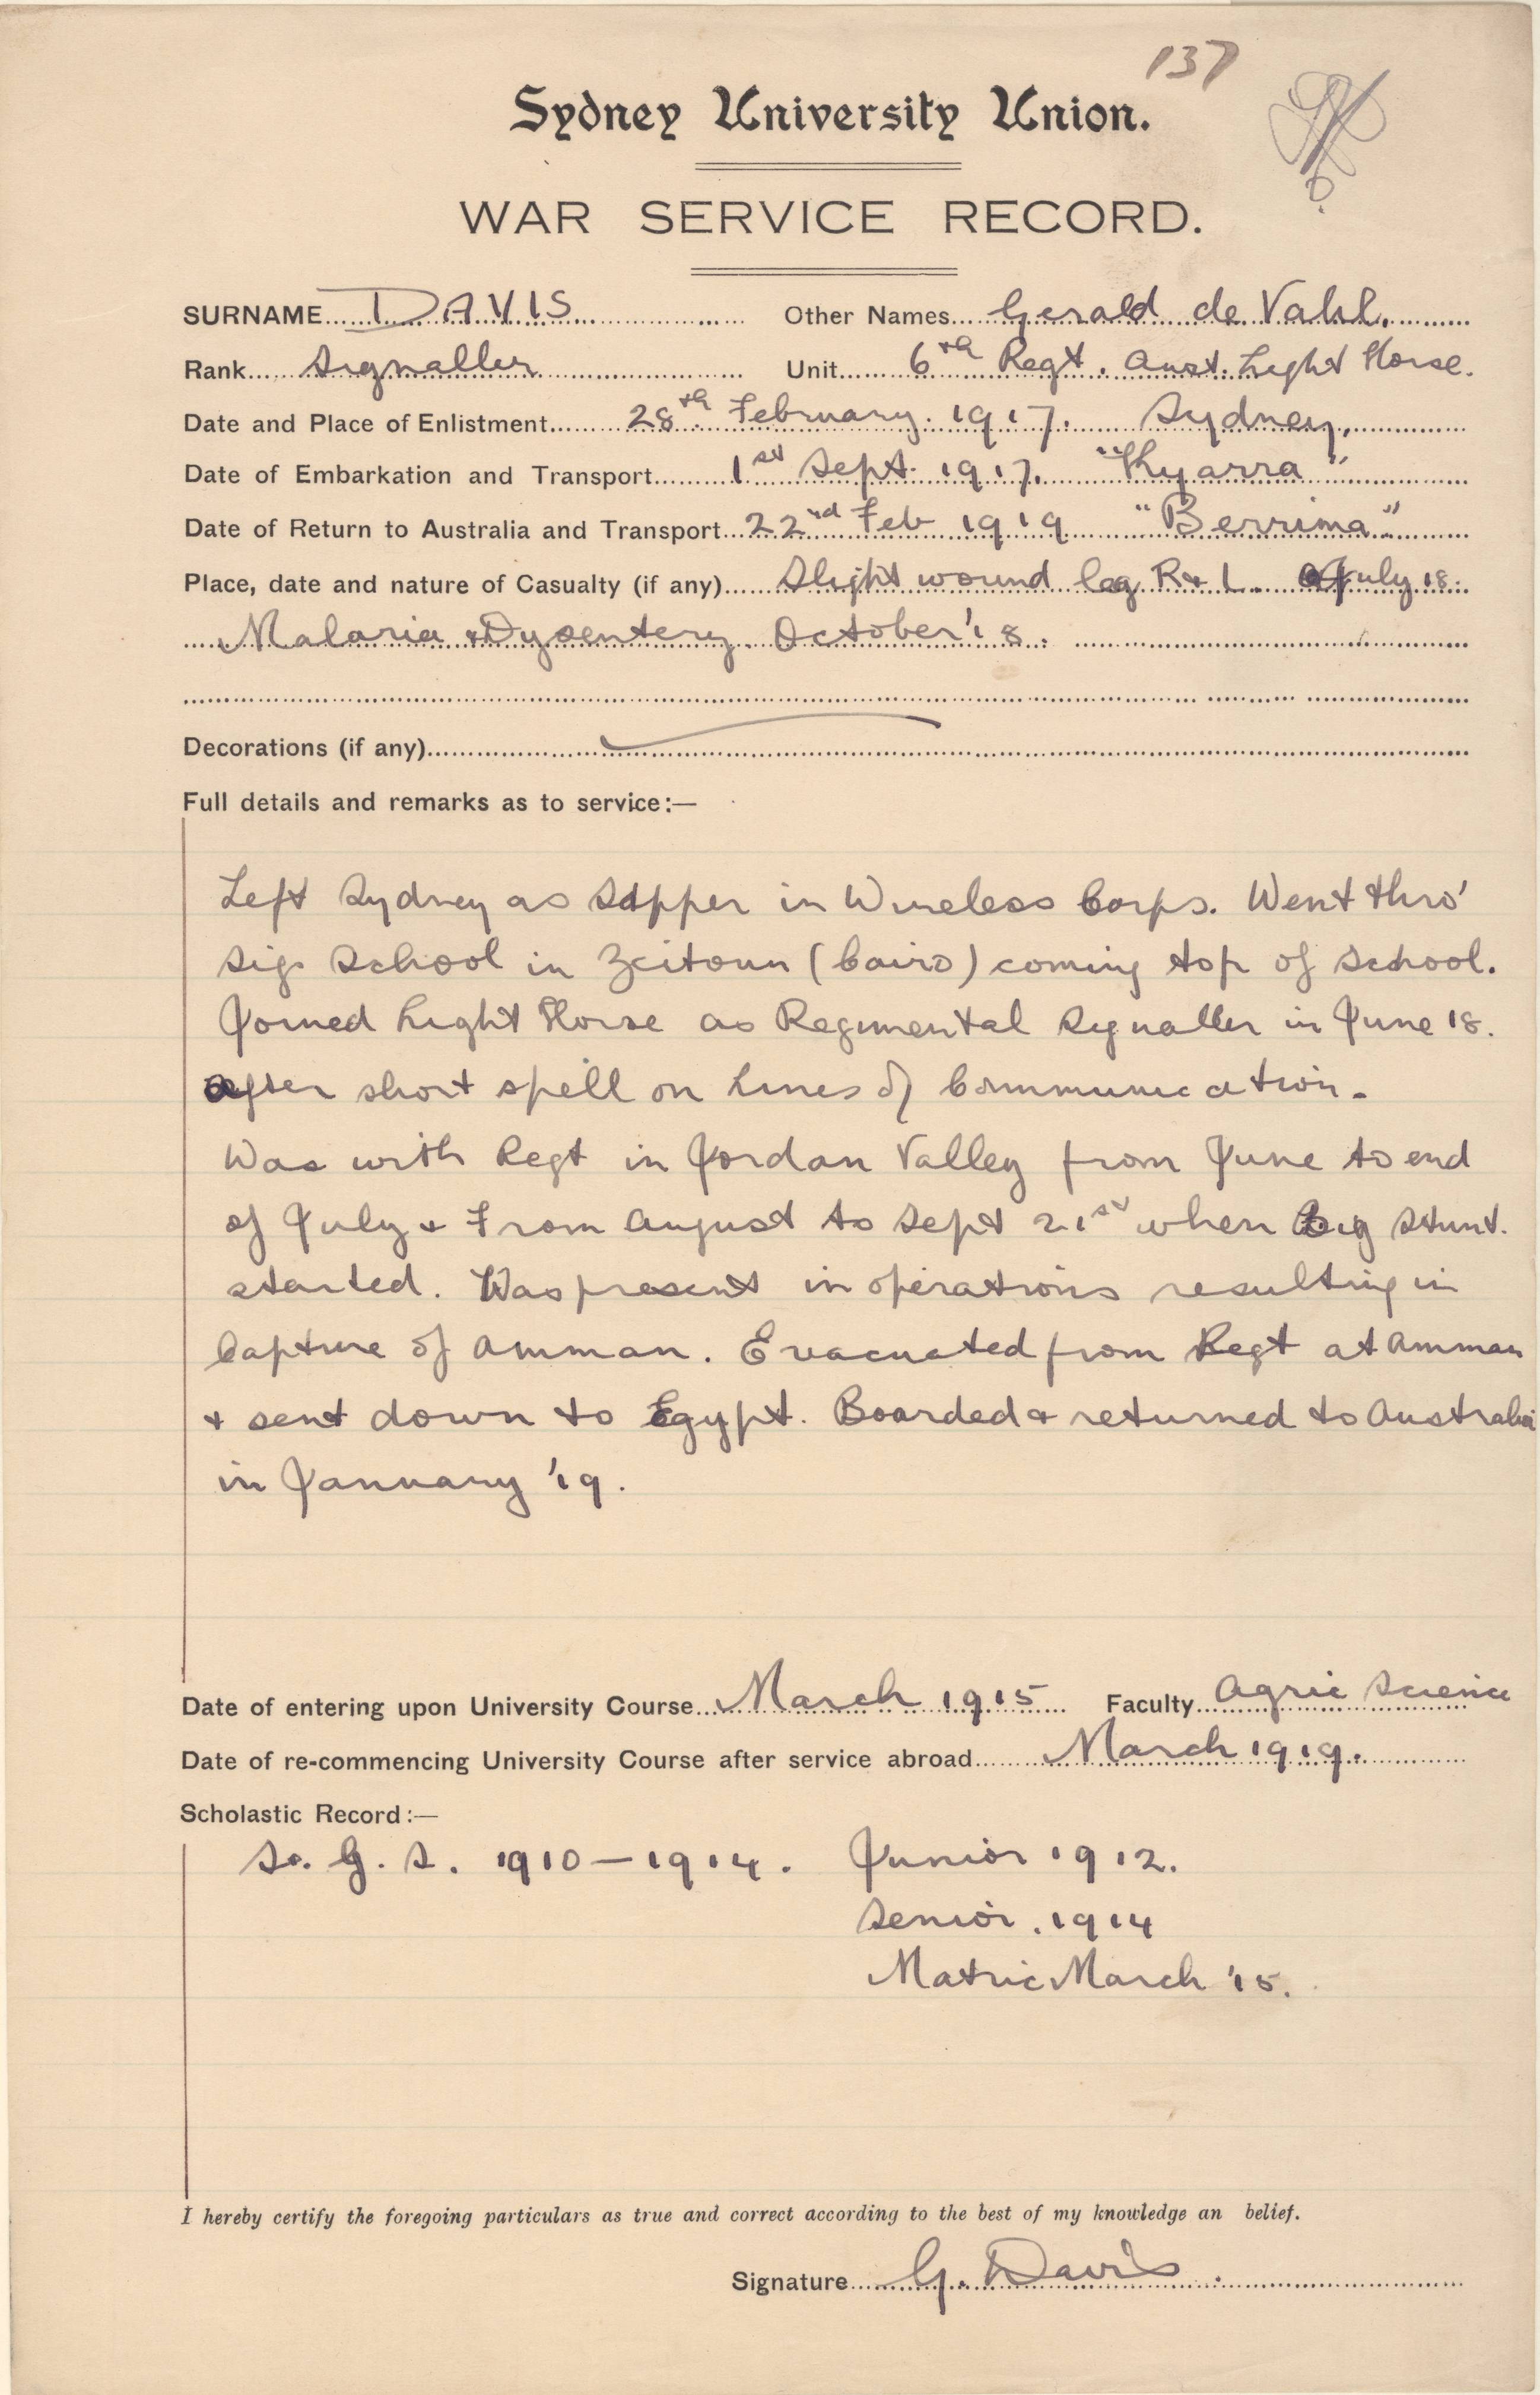 137
Sydney University Union.
WAR SERVICE RECORD.
SURNAME DAVIS Other Names Gerald de Vahl.
Rank Signaller Unit 6th Regt. Aust. Light Horse.
Date and Place of Enlistment 28th February. 1917. Sydney.
Date of Embarkation and Transport 1st Sept. 1917. "Kyarra"
Date of Return to Australia and Transport 22nd Feb 1919 "Berrima"
Place, date and nature of Casualty (if any) Slight wound leg R & L. July 18.
Malaria & Dysentery. October '18.
Decorations (if any)
Full details and remarks as to service:—
Left Sydney as Sapper in Wireless Corps. Went thro'
Sig. School in Zeitoun (Cairo) coming top of School.
Joined Light Horse as Regimental Signaller in June 18.
after short spell on Lines of Communication.
Was with Regt in Jordan Valley from June to end
of July & From August to Sept 21st when Big Stunt.
started. Was present in operations resulting in
Capture of Amman. Evacuated from Regt at Amman
& sent down to Egypt. Boarded & returned to Australia
in January '19.
Date of entering upon University Course March 1915 Faculty Agric Science
Date of re-commencing University Course after service abroad March 1919.
Scholastic Record:—
S. G. S. 1910—1914. Junior 1912.
Senior. 1914
Matric March '15.
I hereby certify the foregoing particulars as true and correct according to the best of my knowledge an belief.
Signature G. Davis.